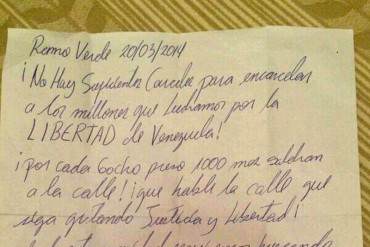 Ramo Verde 20/03/2014
¡No Hay Suficientes Carceles para encarcelar
a los millones que luchamos por la
LIBERTAD de Venezuela!
¡por cada Gocho preso 1000 mas saldran
a la calle! ¡que hable la calle que
siga gritando Justicia y Libertad!